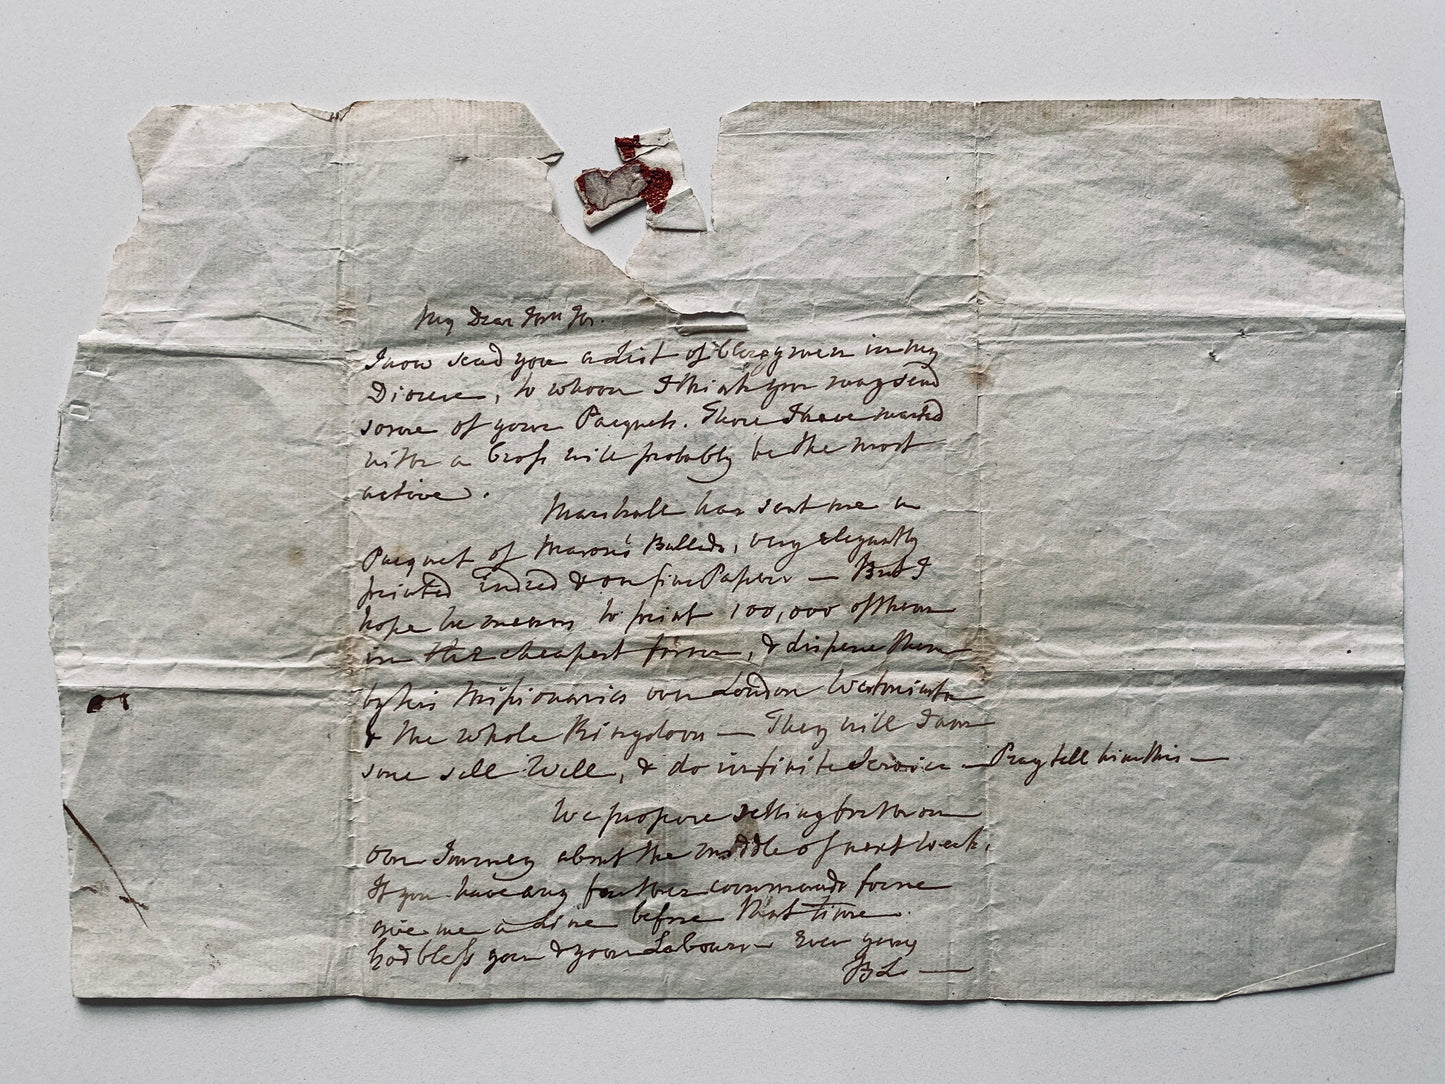 My Dear
I now send you a List of Clergymen in my
Diocese, to whom I think you may send
some of your Pacquets. Those I have marked
with a Cross will probably be the most
active.
Marshall has sent me a
Pacquet of Mason's Ballads, very elegantly
printed indeed & on fine Paper — But I
hope he means to print 100,000 of them
in the cheapest form, & disperse them
by his Missionaries over London Westminster
& the whole Kingdom — They will I am
sure sell well, & do infinite Service — Pray tell him this —
We propose setting out on
our Journey about the middle of next week.
If you have any further commands for me
give me a Line before that time.
God bless you & your Labours Ever yours
BL —